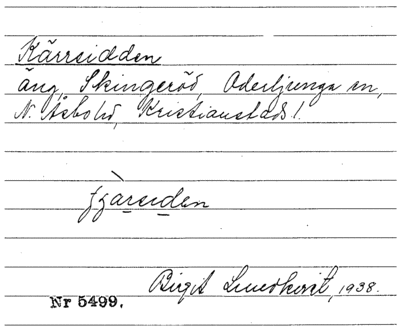 Kärrsidden
äng, Skingeröd, Oderljunga sn,
N. Åsbo hd, Kristianstads l.
fjàrsiden
Birgit Lundkvist, 1938.
Nr 5499.